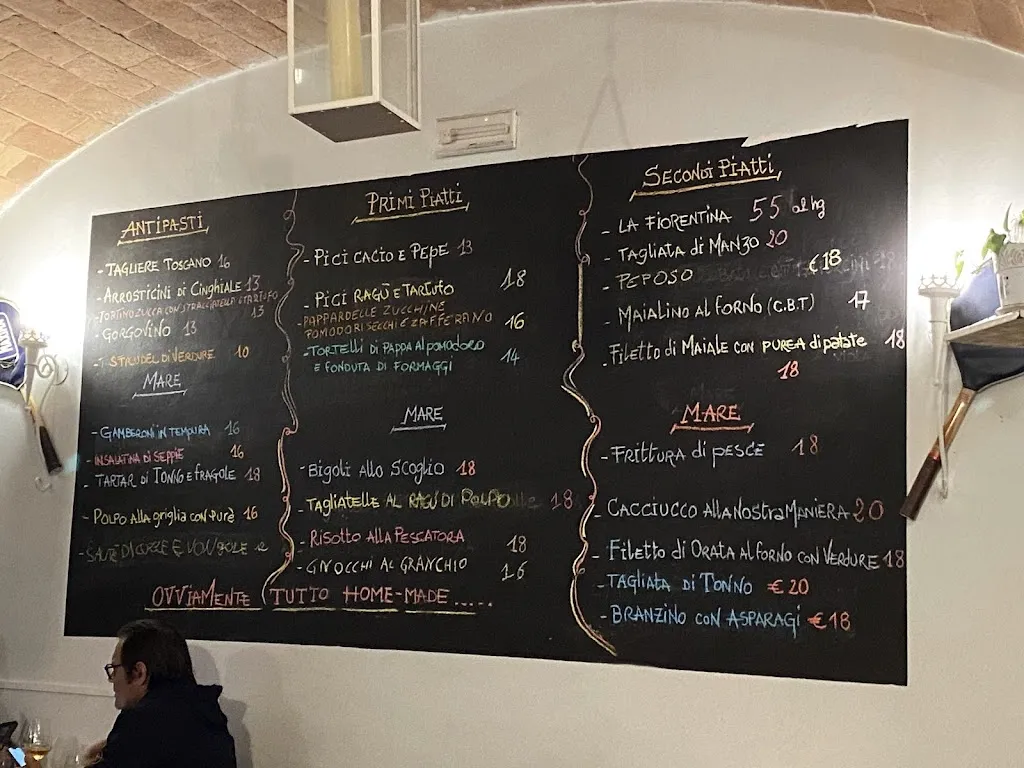 ANTIPASTI
- TAGLIERE TOSCANO 16
- ARROSTICINI DI CINGHIALE 13
- TORTINO ZUCCA CON STRACCIATELLA E TARTUFO 13
- GORGOVINO 13
- STRUDEL DI VERDURE 10
MARE
- GAMBERONI IN TEMPURA 16
- INSALATINA DI SEPPIE 16
- TARTAR DI TONNO E FRAGOLE 18
- POLPO ALLA GRIGLIA CON PURÈ 16
- SAUTÈ DI COZZE E VONGOLE
PRIMI PIATTI
- PICI CACIO E PEPE 13
- PICI RAGÙ E TARTUFO 18
- PAPPARDELLE ZUCCHINE
POMODORI SECCHI E ZAFFERANO 16
- TORTELLI DI PAPPA AL POMODORO
E FONDUTA DI FORMAGGI 14
MARE
- BIGOLI ALLO SCOGLIO 18
- TAGLIATELLE AL RAGÙ DI POLPO 18
- RISOTTO ALLA PESCATORA 18
- GNOCCHI AL GRANCHIO 16
SECONDI PIATTI
- LA FIORENTINA 55 al Kg
- TAGLIATA di MANZO 20
- PEPOSO €18
- MAIALINO al FORNO (C.B.T) 17
- FILETTO di MAIALE CON PUREA di patate 18
18
MARE
- FRITTURA di pesce 18
- CACCIUCCO ALLA NOSTRA MANIERA 20
- FILETTO di ORATA AL FORNO CON VERDURE 18
- TAGLIATA DI TONNO €20
- BRANZINO CON ASPARAGI €18
OVVIAMENTE TUTTO HOME-MADE.....